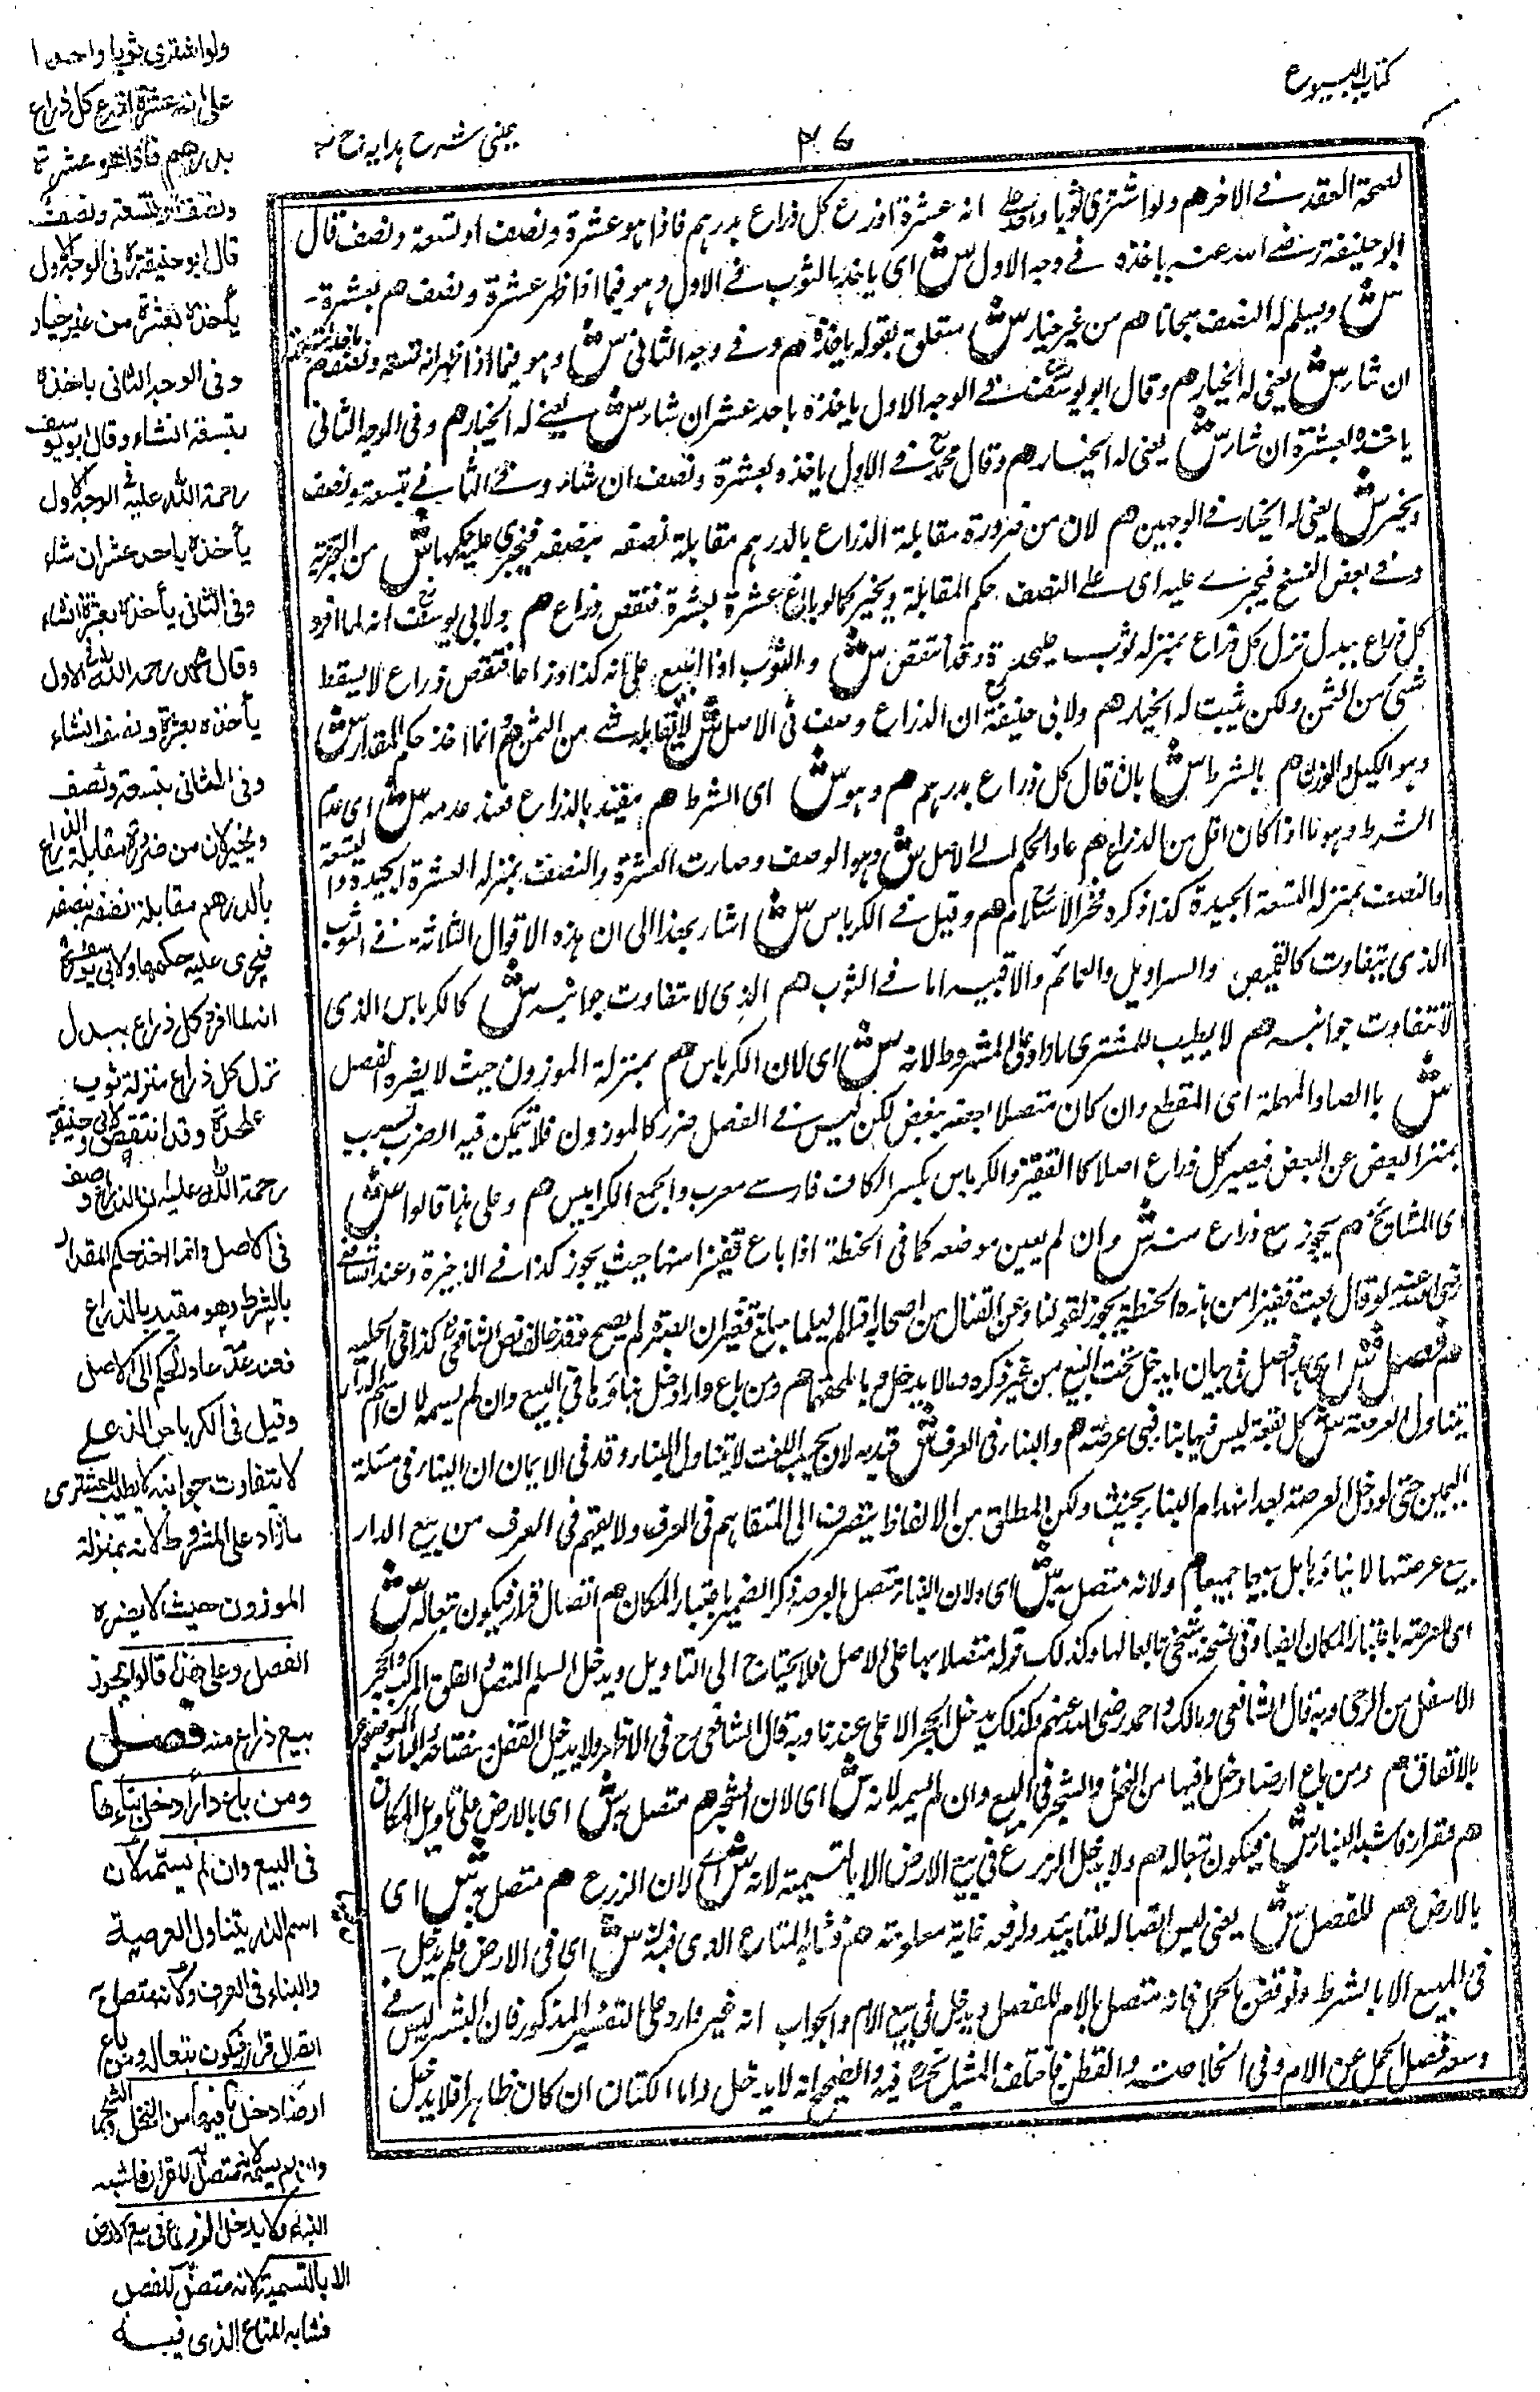 كتاب البيوع
٣٤
عینی شرح ہدایہ ج ٣
لصحة العقد في الآخر هم ولو اشترى ثوبا واحدا على انه عشرة اذرع كل ذراع بدرهم فاذا هو عشرة ونصف او تسعة ونصف قال
ابو حنيفة رضي الله عنه ياخذه في وجه الاول ش اي ياخذ الثوب في الاول وهو فيما اذا ظهر عشرة ونصف هم بعشرة
ش ويسلم له النصف مجانا هم من غير خيار ش متعلق بقوله ياخذه هم وفي وجه الثاني ش وهو فيما اذا ظهر انه تسعة ونصف هم
ان شاء ش يعني له الخيار هم وقال ابو يوسف في الوجه الاول ياخذه باحد عشر ان شاء ش يعني له الخيار هم وفي الوجه الثاني
ياخذه بعشرة ان شاء ش يعني له الخيار هم وقال محمد في الاول ياخذه بعشرة ونصف ان شاء وفي الثاني بتسعة ونصف
ويخير ش يعني له الخيار في الوجهين هم لان من ضرورة مقابلة الذراع بالدرهم مقابلة نصفه بنصفه فيجري عليه حكمها ش من التجزية
وفي بعض النسخ فيجري عليه اي على النصف حكم المقابلة ويخير كما لو باع عشرة بعشرة فنقص ذراع هم ولابي يوسف انه لما افرد
كل ذراع ببدل نزل كل ذراع بمنزلة ثوب عليحدة وقد انتقص ش والثوب اذا ابيع على انه كذا ذراعا فنقص ذراع لا يسقط
شيء من الثمن ولكن يثبت له الخيار هم ولابي حنيفة ان الذراع وصف في الاصل ش لا يقابله شيء من الثمن هم وانما اخذ حكم المقدار ش
وهو الكيل والوزن هم بالشرط ش بان قال كل ذراع بدرهم هم وهو ش اي الشرط هم مقيد بالذراع فعند عدمه ش اي عدم
الشرط وهو ما اذا كان اقل من الذراع هم عاد الحكم الى الاصل ش وهو الوصف وصارت العشرة والنصف بمنزلة العشرة الجيدة والتسعة
والنصف بمنزلة التسعة الجيدة كذا ذكره فخر الاسلام هم وقيل في الكرباس ش اشار بهذا الى ان هذه الاقوال الثلاثة في الثوب
الذي يتفاوت كالقميص والسراويل والعمائم والاقبية اما في الثوب هم الذي لا تتفاوت جوانبه ش كالكرباس الذي
لا تتفاوت جوانبه هم لا يطيب للمشتري ما زاد على المشروط لانه ش اي لان الكرباس هم بمنزلة الموزون حيث لا يضره الفصل
ش بالصاد المهملة اي المقطع وان كان متصلا بعضه ببعض لكن ليس في الفصل ضرر كالموزون فلا يتمكن فيه الضرب بسبب
تميز البعض عن البعض فيصير كل ذراع اصلا كالقفيز والكرباس بكسر الكاف فارسي معرب والجمع الكرابيس هم وعلى هذا قالوا ش
اي المشايخ هم يجوز بيع ذراع منه ش وان لم يبين موضعه كما في الحنطة اذا باع قفيزا منها حيث يجوز كذا في الذخيرة وعند الشافعي
رضي الله عنه لو قال بعت قفيزا من هذه الحنطة يجوز كقولنا وعن القفال من اصحابه
هم فصل ش اي هذا فصل في بيان ما يدخل تحت البيع من غير ذكره وما لا يدخل هم ومن باع دارا دخل بناؤها في البيع وان لم يسمه لان اسم الدار
يتناول العرصة ش كل بقعة ليس فيها بناء فهي عرصة هم والبناء في العرف ش قيد به لان بحسب اللغة لا يتناول البناء وقد في الايمان ان البناء في مسئلة
اليمين حتى لو دخل العرصة بعد انهدام البناء يحنث ولكن المطلق من الالفاظ يتصرف الى المتفاهم في العرف ولا يفهم في العرف من بيع الدار
بيع عرصتها لا بناؤها بل بيعها جميعا هم ولانه متصل به ش اي ولان البناء متصل بالعرصة ذكر الضمير باعتبار المكان هم اتصال قرار فيكون تبعا له ش
اي للعرصة باعتبار المكان ايضا وفي نسخة شيخي تابعا لها وكذلك قوله متصلا بها على الاصل فلا يحتاج الى التاويل ويدخل السلم المتصل والغلق المركب والحجر
الاسفل من الرحى وبه قال الشافعي ومالك واحمد رضي الله عنهم وكذلك يدخل الحجر الاعلى عندنا وبه قال الشافعي رح في الاظهر ولا يدخل القفل
بالاتفاق هم ومن باع ارضا دخل ما فيها من النخل والشجر في البيع وان لم يسمه لانه ش اي لان الشجر هم متصل به ش اي بالارض على تاويل المكان
هم للقرار فاشبه البناء ش فيكون تبعا له هم ولا يدخل الزرع في بيع الارض الا بالتسمية لانه ش اي لان الزرع هم متصل به ش اي
بالارض هم للفصل ش يعني ليس اتصاله للتابيد ولرفعه غاية معلومة هم فشابه المتاع الذي فيه ش اي في الارض فلم يدخل
في البيع الا بالشرط ونوقض بالحمل فانه متصل بالام للفصل ويدخل في بيع الام والجواب انه غير وارد على التفسير المذكور فان البشر ليس في
وسعه فصل الحمل عن الام وفي الخلاصة والقطن فاختلف المشايخ فيه والصحيح انه لا يدخل واما الكتان ان كان ظاهرا فلا يدخل
ولو اشترى ثوبا واحدا
على انه عشرة اذرع كل ذراع
بدرهم فاذا هو عشرة
ونصف او تسعة ونصف
قال ابو حنيفة في الوجه الاول
يأخذه بعشرة من غير خيار
وفي الوجه الثاني ياخذه
بتسعة ان شاء وقال ابو يوسف
رحمة الله عليه في الوجه الاول
يأخذه باحد عشر ان شاء
وفي الثاني يأخذه بعشرة ان شاء
وقال محمد رحمه الله في الاول
يأخذه بعشرة ونصف ان شاء
وفي الثاني بتسعة ونصف
ويخير لان من ضرورة مقابلة الذراع
بالدرهم مقابلة نصفه بنصفه
فيجري عليه حكمها ولابي يوسف
انه لما افرد كل ذراع ببدل
نزل كل ذراع منزلة ثوب
علحدة وقد انتقص ولابي حنيفة
رحمة الله عليه ان الذراع وصف
في الاصل وانما اخذ حكم المقدار
بالشرط وهو مقيد بالذراع
فعند عدمه عاد الحكم الى الاصل
وقيل في الكرباس الذي
لا تتفاوت جوانبه لا يطيب للمشتري
ما زاد على المشروط لانه بمنزلة
الموزون حيث لا يضره
الفصل وعلى هذا قالوا يجوز
بيع ذراع منه فصل
ومن باع دارا دخل بناءها
في البيع وان لم يسمه لان
اسم الدار يتناول العرصة
والبناء في العرف ولانه متصل به
اتصال قرار فيكون تبعا له ومن باع
ارضا دخل ما فيها من النخل والشجر
وان لم يسمه لانه متصل به للقرار فاشبه
البناء ولا يدخل الزرع في بيع الارض
الا بالتسمية لانه متصل به للفصل
فشابه المتاع الذي فيه